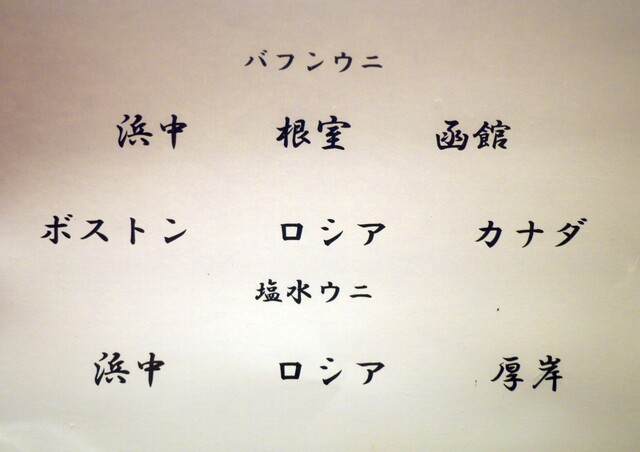 バフンウニ
浜中 根室 函館
ボストン ロシア カナダ
塩水ウニ
浜中 ロシア 厚岸